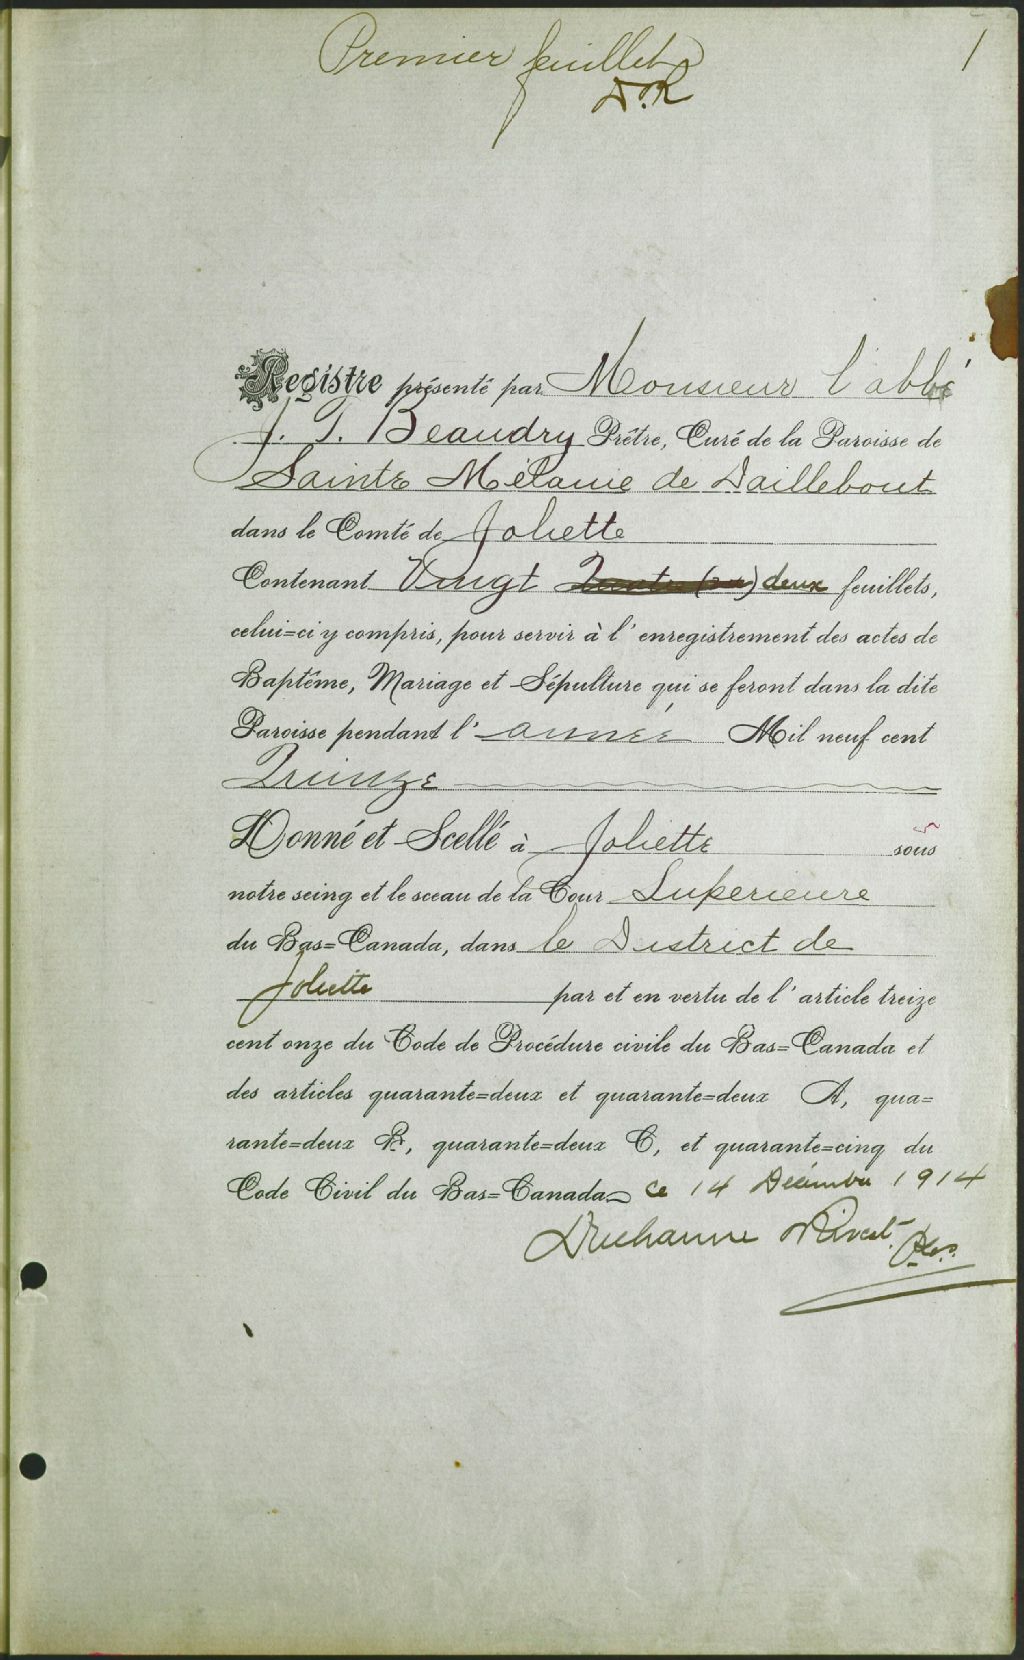 Premier feuillet
1
D.R
Registre présenté par Monsieur l'abbé
J. T. Beaudry Prêtre, Curé de la Paroisse de
Sainte Mélanie de Daillebout
dans le Comté de Joliette
Contenant Vingt deux feuillets,
celui=ci y compris, pour servir à l'enregistrement des actes de
Baptême, Mariage et Sépulture qui se feront dans la dite
Paroisse pendant l'année Mil neuf cent
Quinze
Donné et Scellé à Joliette sous
notre seing et le sceau de la Cour Supérieure
du Bas=Canada, dans le District de
Joliette par et en vertu de l'article treize
cent onze du Code de Procédure civile du Bas=Canada et
des articles quarante=deux et quarante=deux A, qua=
rante=deux B, quarante=deux C, et quarante=cinq du
Code Civil du Bas=Canada ce 14 Décembre 1914
Ducharme Rivest